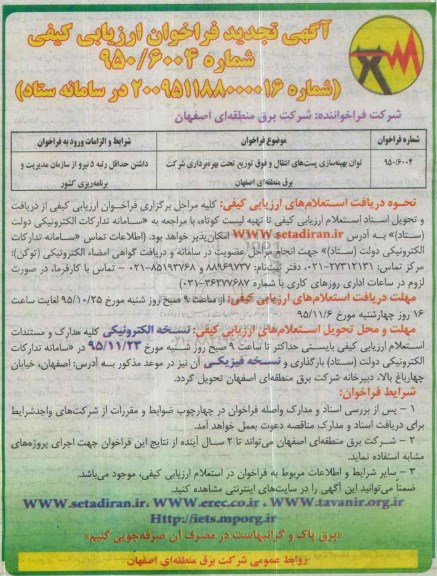 آگهی تجدید فراخوان ارزیابی کیفی
شماره ۹۵۰/۶۰۰۴
(شماره ۲۰۰۹۵۱۱۸۸۰۰۰۰۱۶ در سامانه ستاد)
شرکت فراخواننده: شرکت برق منطقه‌ای اصفهان
شماره فراخوان موضوع فراخوان شرایط و الزامات ورود به فراخوان
۹۵۰/۶۰۰۴ توان بهینه‌سازی پست‌های انتقال و فوق توزیع تحت بهره‌برداری شرکت برق منطقه‌ای اصفهان داشتن حداقل رتبه ۵ نیرو از سازمان مدیریت و برنامه‌ریزی کشور
نحوه دریافت استعلام‌های ارزیابی کیفی: کلیه مراحل برگزاری فراخوان ارزیابی کیفی از دریافت
و تحویل اسناد استعلام ارزیابی کیفی تا تهیه لیست کوتاه، با مراجعه به «سامانه تدارکات الکترونیکی دولت
(ستاد)» به آدرس WWW.setadiran.ir امکان‌پذیر خواهد بود. (اطلاعات تماس «سامانه تدارکات
الکترونیکی دولت (ستاد)» جهت انجام مراحل عضویت در سامانه و دریافت گواهی امضاء الکترونیکی (توکن):
مرکز تماس: ۲۷۳۱۳۱۳۱-۰۲۱، دفتر ثبت‌نام: ۸۸۹۶۹۷۳۷ و ۸۵۱۹۳۷۶۸-۰۲۱ - تماس با کارفرما، در صورت
لزوم در ساعات اداری روزهای کاری با شماره ۳۶۲۷۷۶۸۷-۰۳۱)
مهلت دریافت استعلام‌های ارزیابی کیفی: از ساعت ۹ صبح روز شنبه مورخ ۹۵/۱۰/۲۵ لغایت ساعت
۱۶ روز چهارشنبه مورخ ۹۵/۱۱/۶
مهلت و محل تحویل استعلام‌های ارزیابی کیفی: نسخه الکترونیکی کلیه مدارک و مستندات
استعلام ارزیابی کیفی بایستی حداکثر تا ساعت ۹ صبح روز شنبه مورخ ۹۵/۱۱/۲۳ در «سامانه تدارکات
الکترونیکی دولت (ستاد) بارگذاری و نسخه فیزیکی آن نیز در موعد مذکور به آدرس: اصفهان، خیابان
چهارباغ بالا، دبیرخانه شرکت برق منطقه‌ای اصفهان تحویل گردد.
شرایط فراخوان:
۱ - پس از بررسی اسناد و مدارک واصله فراخوان در چهارچوب ضوابط و مقررات از شرکت‌های واجدشرایط
برای دریافت اسناد و مدارک مناقصه دعوت بعمل خواهد آمد.
۲ - شرکت برق منطقه‌ای اصفهان می‌تواند تا ۲ سال آینده از نتایج این فراخوان جهت اجرای پروژه‌های
مشابه استفاده نماید.
۳ - سایر شرایط و اطلاعات مربوط به فراخوان در استعلام ارزیابی کیفی، موجود می‌باشد.
ضمناً می‌توانید این آگهی را در سایت‌های اینترنتی مشاهده کنید.
WWW.setadiran.ir، WWW.erec.co.ir ، WWW.tavanir.org.ir
Http://iets.mporg.ir
«برق پاک و گرانبهاست در مصرف آن صرفه‌جویی کنیم»
روابط عمومی شرکت برق منطقه‌ای اصفهان